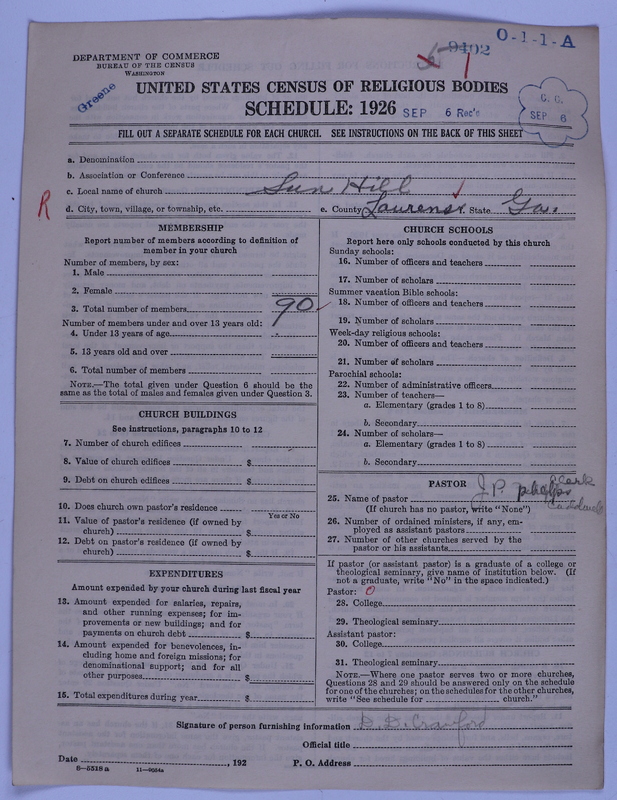 O-1-1-A
9402
DEPARTMENT OF COMMERCE
BUREAU OF THE CENSUS
WASHINGTON
Greene
UNITED STATES CENSUS OF RELIGIOUS BODIES
SCHEDULE: 1926 SEP 6 Rec'd
C. C.
SEP 6
FILL OUT A SEPARATE SCHEDULE FOR EACH CHURCH. SEE INSTRUCTIONS ON THE BACK OF THIS SHEET
a. Denomination
b. Association or Conference
c. Local name of church Sun Hill
R d. City, town, village, or township, etc. e. County Laurens State Ga.
MEMBERSHIP
Report number of members according to definition of
member in your church
Number of members, by sex:
1. Male
2. Female
3. Total number of members 90
Number of members under and over 13 years old:
4. Under 13 years of age
5. 13 years old and over
6. Total number of members
NOTE.—The total given under Question 6 should be the
same as the total of males and females given under Question 3.
CHURCH BUILDINGS
See instructions, paragraphs 10 to 12
7. Number of church edifices
8. Value of church edifices $
9. Debt on church edifices $
10. Does church own pastor's residence
Yes or No
11. Value of pastor's residence (if owned by
church) $
12. Debt on pastor's residence (if owned by
church) $
EXPENDITURES
Amount expended by your church during last fiscal year
13. Amount expended for salaries, repairs,
and other running expenses; for im-
provements or new buildings; and for
payments on church debt $
14. Amount expended for benevolences, in-
cluding home and foreign missions; for
denominational support; and for all
other purposes $
15. Total expenditures during year $
CHURCH SCHOOLS
Report here only schools conducted by this church
Sunday schools:
16. Number of officers and teachers
17. Number of scholars
Summer vacation Bible schools:
18. Number of officers and teachers
19. Number of scholars
Week-day religious schools:
20. Number of officers and teachers
21. Number of scholars
Parochial schools:
22. Number of administrative officers
23. Number of teachers—
a. Elementary (grades 1 to 8)
b. Secondary
24. Number of scholars—
a. Elementary (grades 1 to 8)
b. Secondary
PASTOR
25. Name of pastor J. P. Phelps Clerk
(If church has no pastor, write "None")
26. Number of ordained ministers, if any, em-
ployed as assistant pastors
27. Number of other churches served by the
pastor or his assistants
If pastor (or assistant pastor) is a graduate of a college or
theological seminary, give name of institution below. (If
not a graduate, write "No" in the space indicated.)
Pastor: O
28. College
29. Theological seminary
Assistant pastor:
30. College
31. Theological seminary
NOTE.—Where one pastor serves two or more churches,
Questions 28 and 29 should be answered only on the schedule
for one of the churches; on the schedules for the other churches,
write "See schedule for church."
Signature of person furnishing information B. D. Crawford
Official title
Date , 192 P. O. Address
6—5518 a 11—9084a